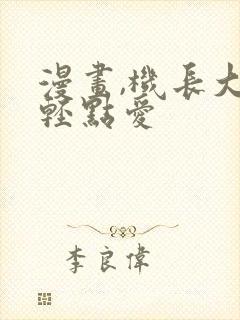 漫畫,機長大
輕點愛
李良偉